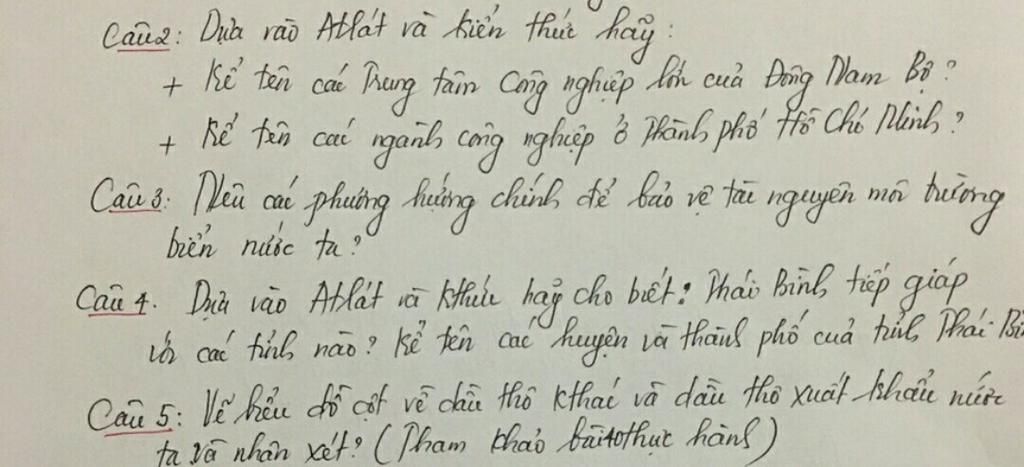 Câu 2: Dựa vào Atlát và kiến thức hãy:
+ Kể tên các Trung tâm Công nghiệp lớn của Đông Nam Bộ?
+ Kể tên các ngành công nghiệp ở Thành phố Hồ Chí Minh?
Câu 3: Nêu các phương hướng chính để bảo vệ tài nguyên môi trường
biển nước ta?
Câu 4. Dựa vào Atlát và kthức hãy cho biết: Thái Bình tiếp giáp
với các tỉnh nào? Kể tên các huyện và thành phố của tỉnh Thái Bì
Câu 5: Vẽ biểu đồ cột về dầu thô kthác và dầu thô xuất khẩu nước
ta và nhận xét? (Tham khảo bài 40 thực hành)